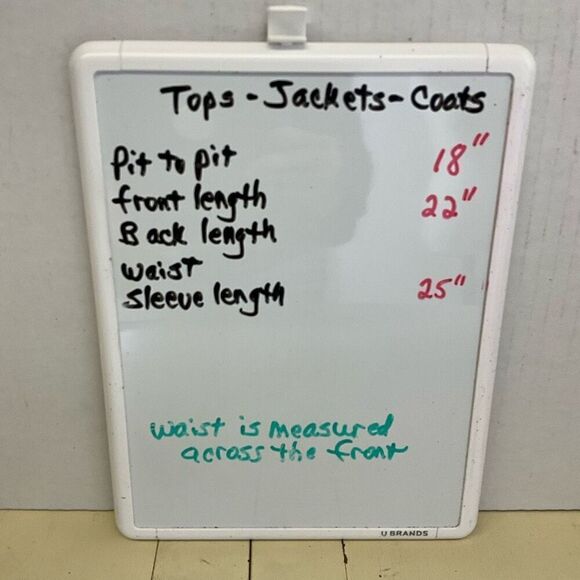 Tops - Jackets - Coats
Pit to pit 18"
front length 22"
Back length
waist
Sleeve length 25"
waist is measured
across the front
U BRANDS